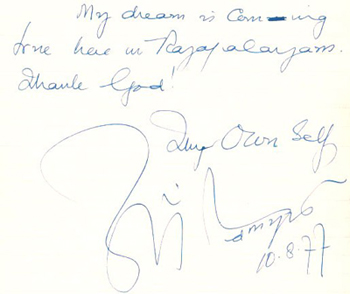 My dream is Coming
true here in Rajapalayam.
Thank God!
Thy Own Self
10.8.77